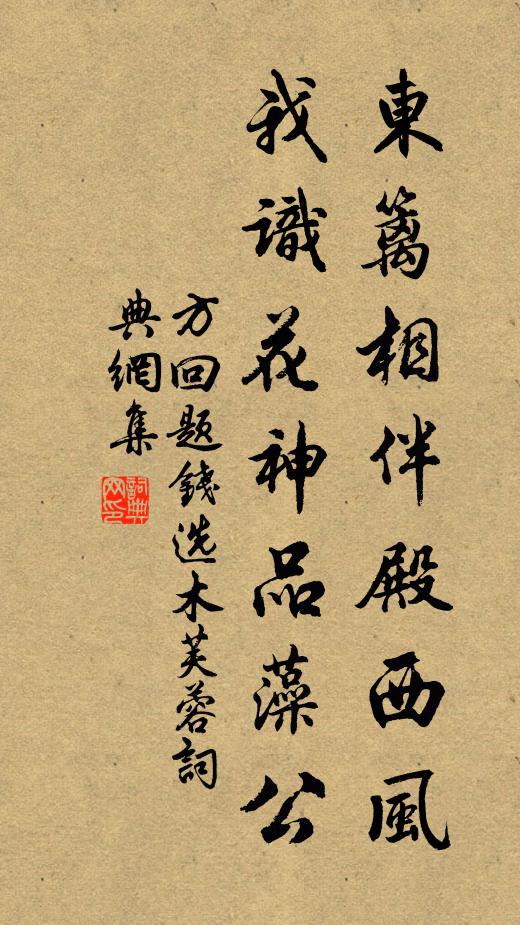 東籬相伴殿西風
我識花神品藻公
方回題錢选木芙蓉詞
典網集
詞典网印